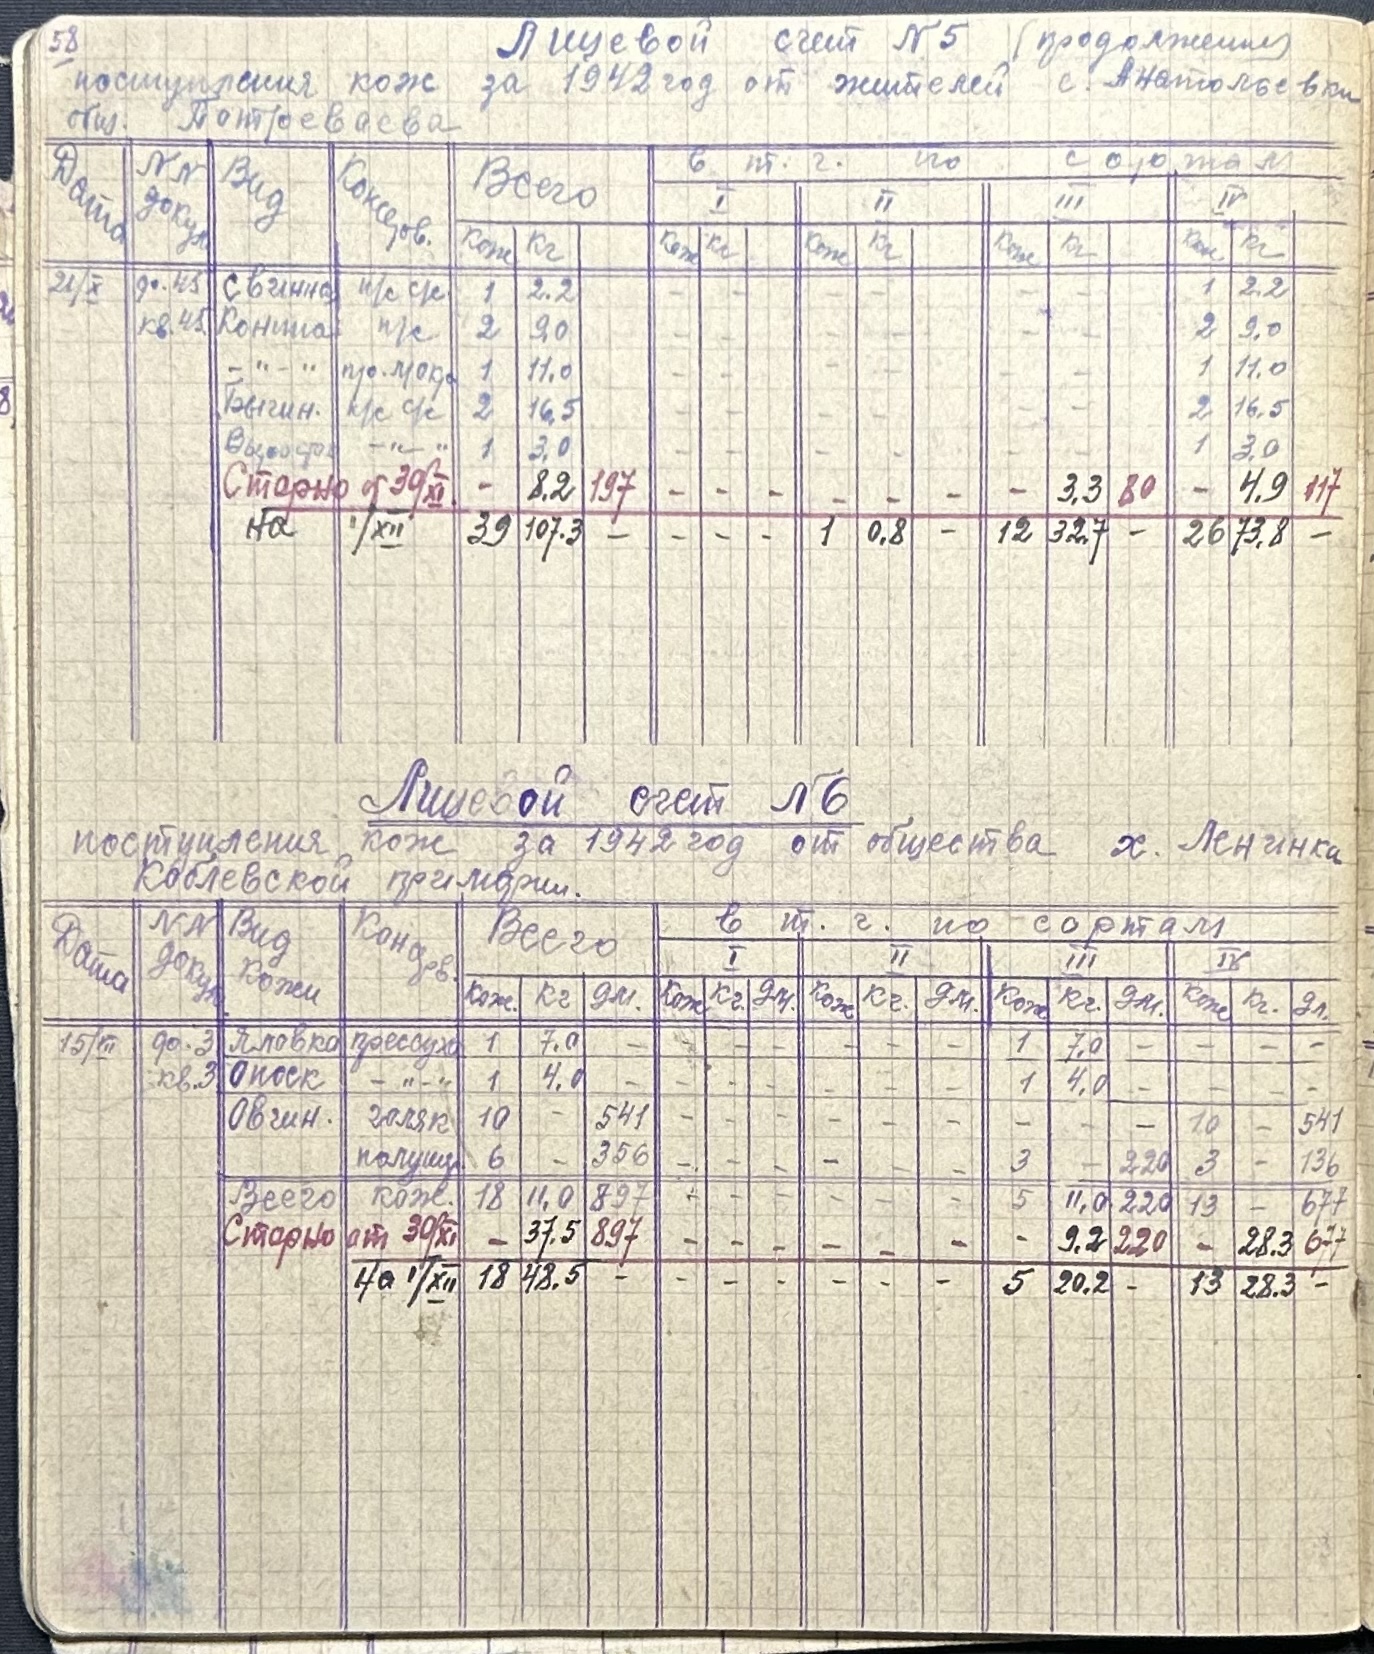 58
Лицевой счет N5 (продолжение)
поступления кож за 1942 год от жителей с. Анатольевки
общ.
Дата NN докум Вид Консерв. Всего в т. ч. по сортам
I II III IV
Кож Кг Кож Кг Кож Кг Кож Кг Кож Кг
21/X до. 45 Свинна п/с с/с 1 2.2 - - - - - - 1 2.2
кв. 45 Конина п/с 2 9,0 - - - - - - 2 9,0
- " - " 1 11.0 - - - - - - 1 11.0
Бычин. п/с с/с 2 16,5 - - - - - - 2 16,5
Выросток - " - " 1 3,0 - - - - - - 1 3,0
Сторно от 30/XI. - 8.2 197 - - - - - - - 3,3 80 - 4.9 117
На 1/XII 39 107.3 - - - - 1 0,8 - 12 32.7 - 26 73,8 -
Лицевой счет N6
поступления кож за 1942 год от общества х. Ленинка
Коблевской примарии.
Дата NN докум Вид кожи Консерв. Всего в т. ч. по сортам
I II III IV
Кож. Кг дм. Кож Кг. дм. Кож Кг. дм. Кож Кг. дм. Кож Кг. дм.
15/III до. 3 Яловка прессухо 1 7.0 - - - - - - - 1 7,0 - - - -
кв. 3 Опоек - " - " 1 4,0 - - - - - - - 1 4,0 - - - -
Овчин. голяк 10 - 541 - - - - - - - - - 10 - 541
6 - 356 - - - - - - 3 - 220 3 - 136
Всего кож. 18 11,0 897 - - - - - - 5 11,0 220 13 - 677
Сторно от 30/XI - 37.5 897 - - - - - - - 9.2 220 - 28.3 677
На 1/XII 18 48.5 - - - - - - - 5 20.2 - 13 28.3 -